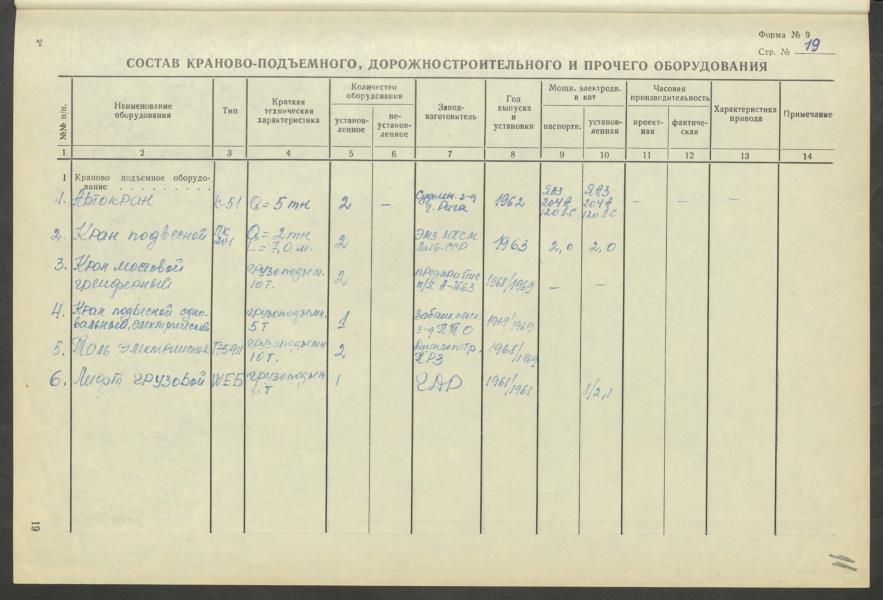 Форма № 9
Стр. № 19
СОСТАВ КРАНОВО-ПОДЪЕМНОГО, ДОРОЖНОСТРОИТЕЛЬНОГО И ПРОЧЕГО ОБОРУДОВАНИЯ
№№ п/п.
Наименование оборудования
Тип
Краткая техническая характеристика
Количество оборудования
установленное
неустановленное
Завод-изготовитель
Год выпуска и установки
Мощн. электродв. в квт
паспортн.
установленная
Часовая производительность
проектная
фактическая
Характеристика привода
Примечание
1 2 3 4 5 6 7 8 9 10 11 12 13 14
I Краново подъемное оборудование
1. Автокран К-51 Q = 5 тн 2 — г. Рига 1962 ЯАЗ 204А 120 л.с ЯАЗ 204А 120 л.с — — —
2. Кран подвесной Q = 2 тн L = 7,0 м. 2 1963 2,0 2,0
3. Кран мостовой грейферный грузоподъем. 10 т. 2 предприятие п/я А-7663 1968/1969 — —
4. Кран подвесной одно-бальный, электрический грузоподъемн. 5 т 1 з-д ПТО 1969/1969
5. Таль электрическая грузоподъемн 10 т. 2 1968/1969
6. Лифт грузовой грузоподъем 1 ГДР 1961/1961
19